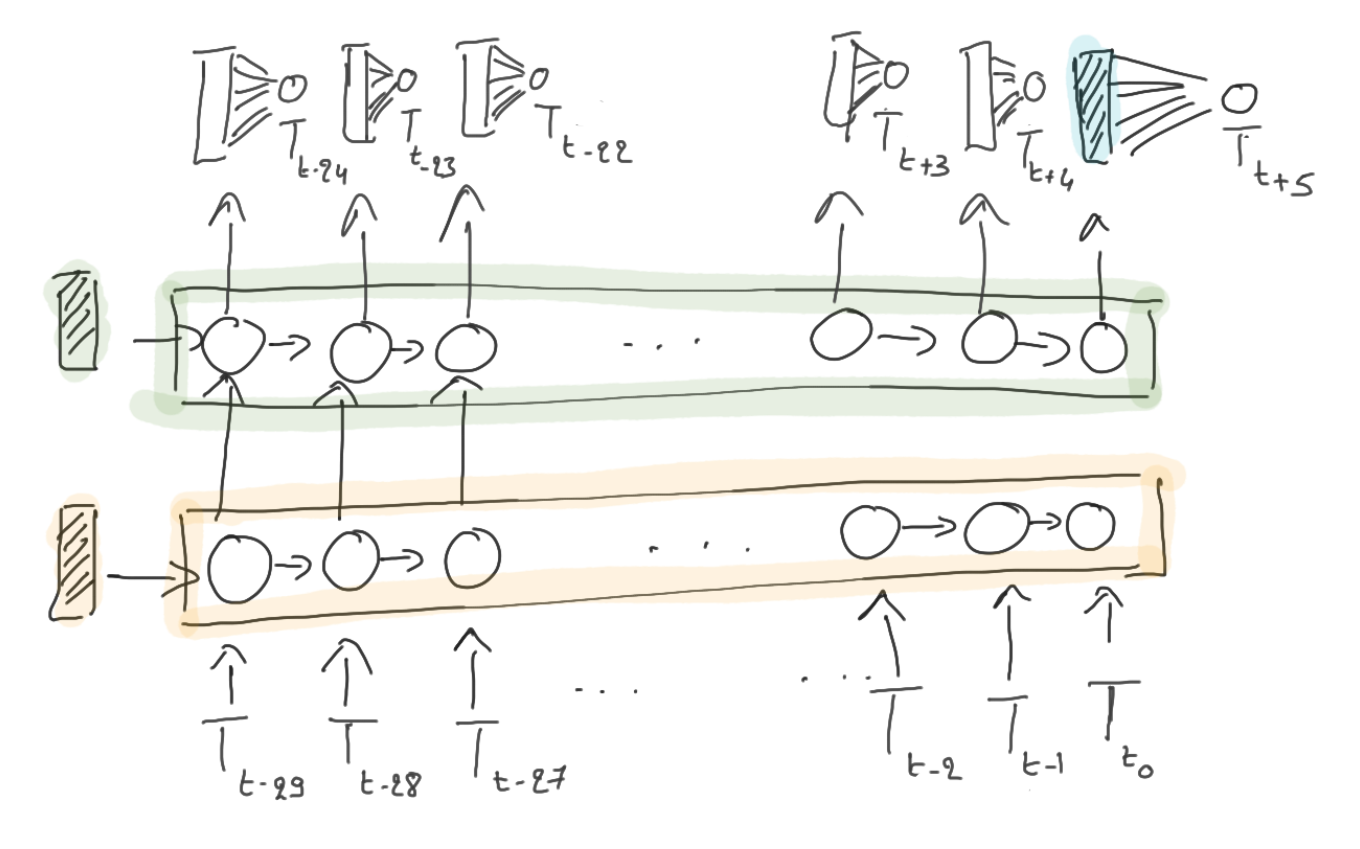 T t-24 T t-23 T t-22 T t+3 T t+4 T t+5
. . .
. . .
. . . . . .
T t-29 T t-28 T t-27 T t-2 T t-1 T t0